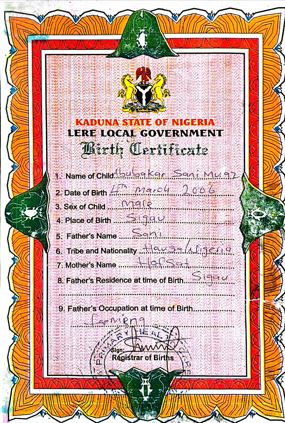 KADUNA STATE OF NIGERIA
LERE LOCAL GOVERNMENT
Birth Certificate
1. Name of Child Abubakar Sani Muaz
2. Date of Birth 4th March 2006
3. Sex of Child male
4. Place of Birth Sigau
5. Father's Name Sani
6. Tribe and Nationality Hausa/Nigeria
7. Mother's Name Hafsat
8. Father's Residence at time of Birth Sigau
9. Father's Occupation at time of Birth
farming
PRIMARY HEAL
Sign:
Registrar of Births